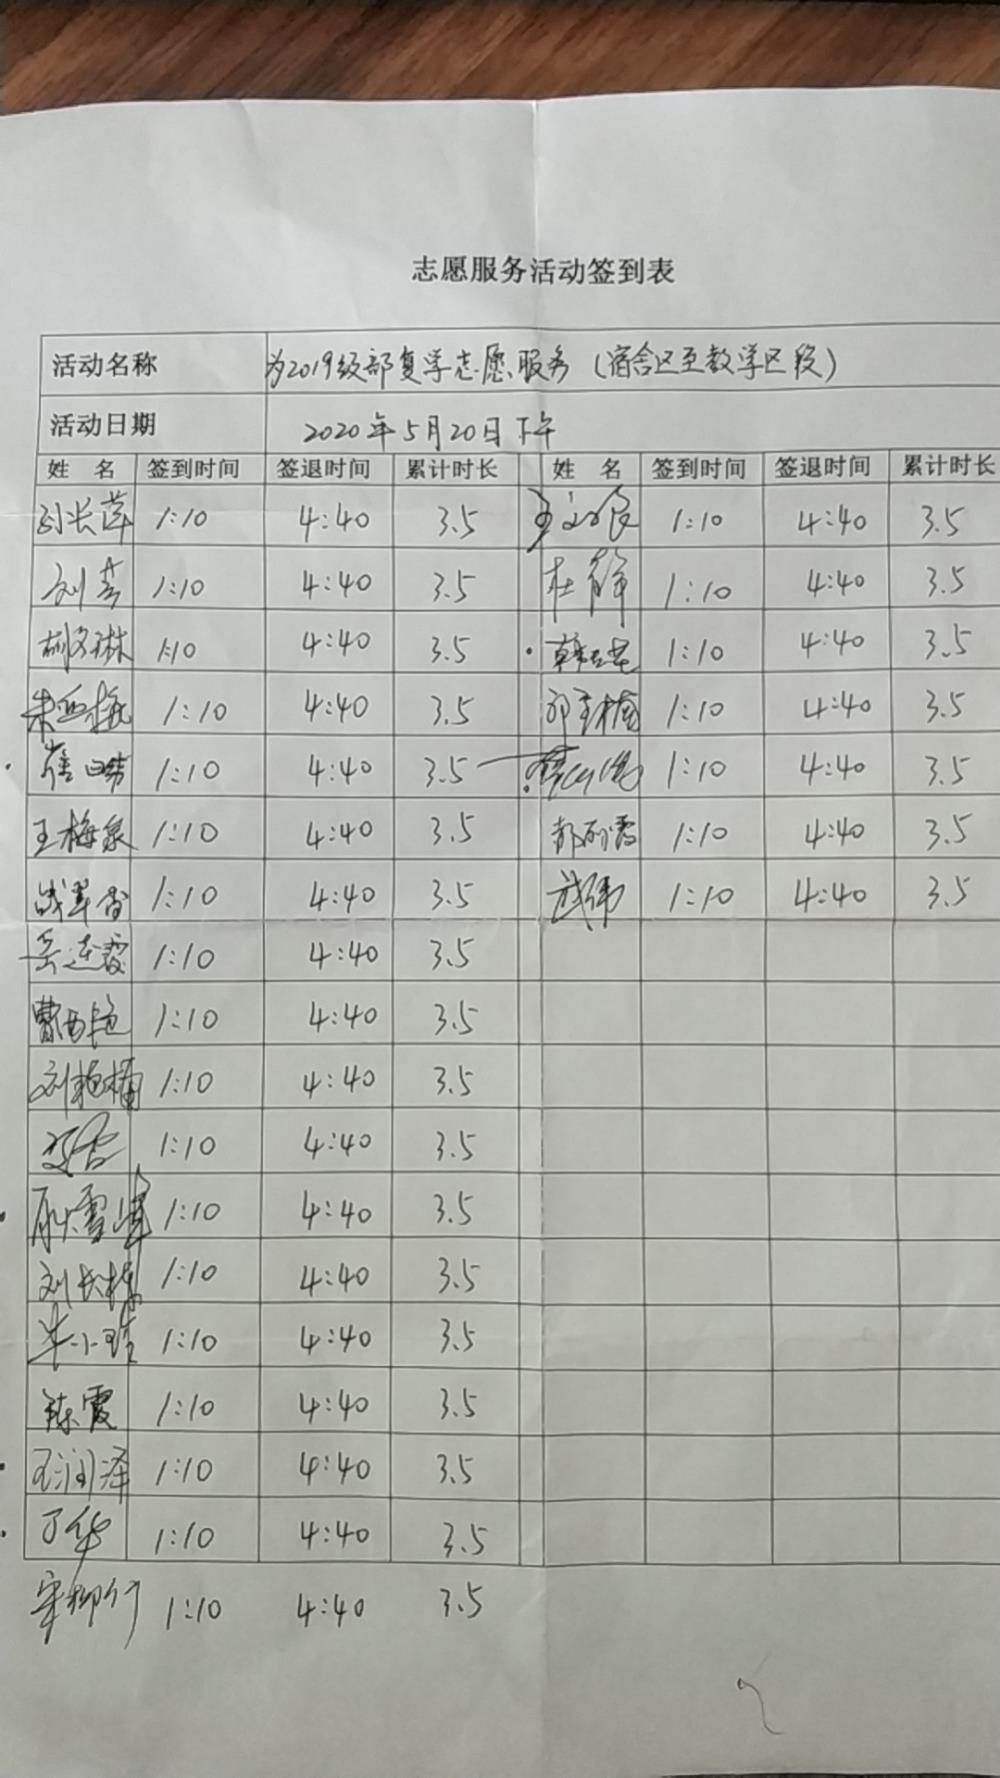 志愿服务活动签到表
活动名称 为2019级部复学志愿服务（宿舍区至教学区段）
活动日期 2020年5月20日下午
姓 名 签到时间 签退时间 累计时长 姓 名 签到时间 签退时间 累计时长
刘长莲 1:10 4:40 3.5 1:10 4:40 3.5
刘芸 1:10 4:40 3.5 杜静 1:10 4:40 3.5
1:10 4:40 3.5 1:10 4:40 3.5
朱亚梅 1:10 4:40 3.5 1:10 4:40 3.5
1:10 4:40 3.5 1:10 4:40 3.5
王梅泉 1:10 4:40 3.5 1:10 4:40 3.5
1:10 4:40 3.5 武伟 1:10 4:40 3.5
岳连霞 1:10 4:40 3.5
1:10 4:40 3.5
刘艳楠 1:10 4:40 3.5
1:10 4:40 3.5
1:10 4:40 3.5
刘长栋 1:10 4:40 3.5
1:10 4:40 3.5
陈霞 1:10 4:40 3.5
王润泽 1:10 4:40 3.5
丁华 1:10 4:40 3.5
1:10 4:40 3.5